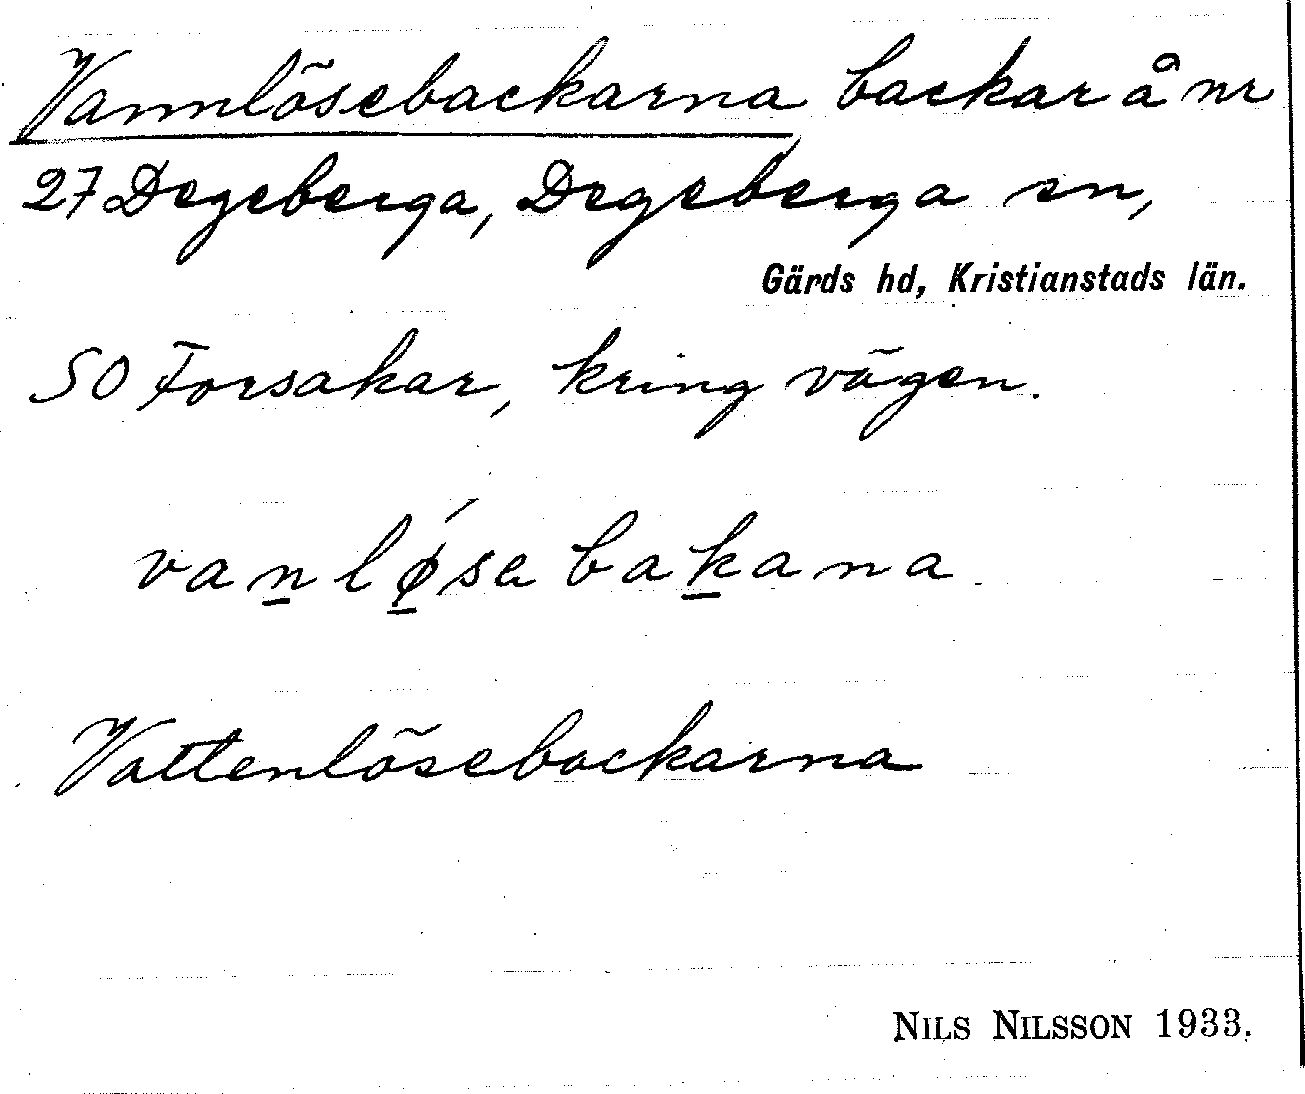 Vannlösebackarna backar å nr
27 Degeberga, Degeberga sn,
Gärds hd, Kristianstads län.
SO Forsakar, kring vägen.
va<u>n</u>l<u>ǿ</u>sa ba<u>k</u>ana
Vattenlösebackarna
NILS NILSSON 1933.